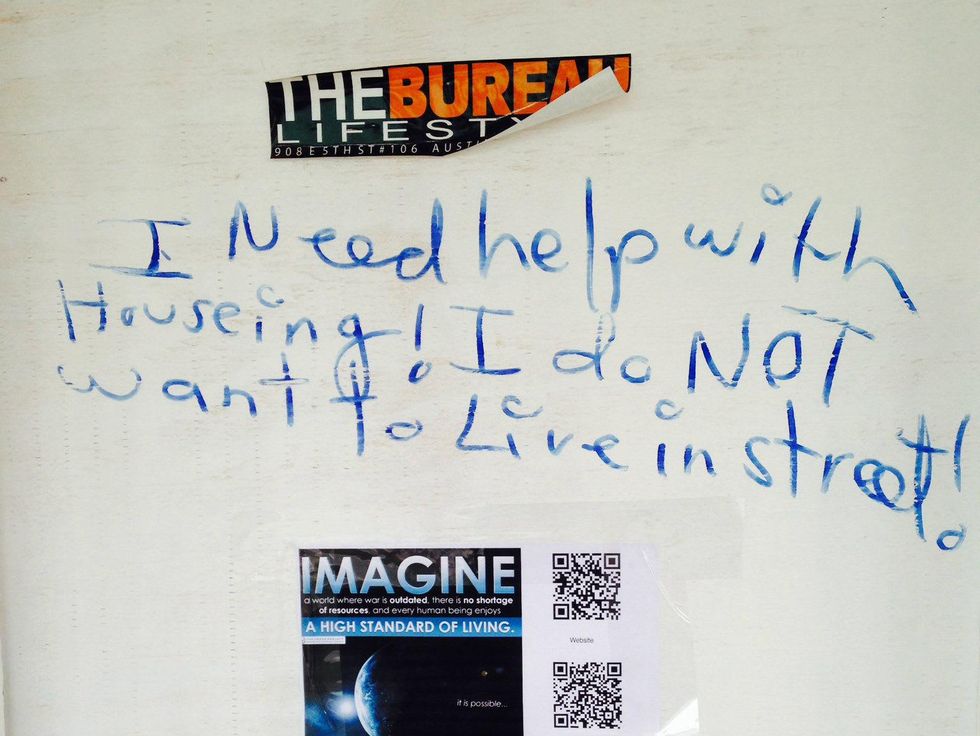 THEBUREAU
LIFESTY
908 E 5TH ST #106 AUSTI
I Need help with
Houseing! I do NOT
want to Live in street!
IMAGINE
a world where war is outdated, there is no shortage
of resources, and every human being enjoys
A HIGH STANDARD OF LIVING.
it is possible...
Website